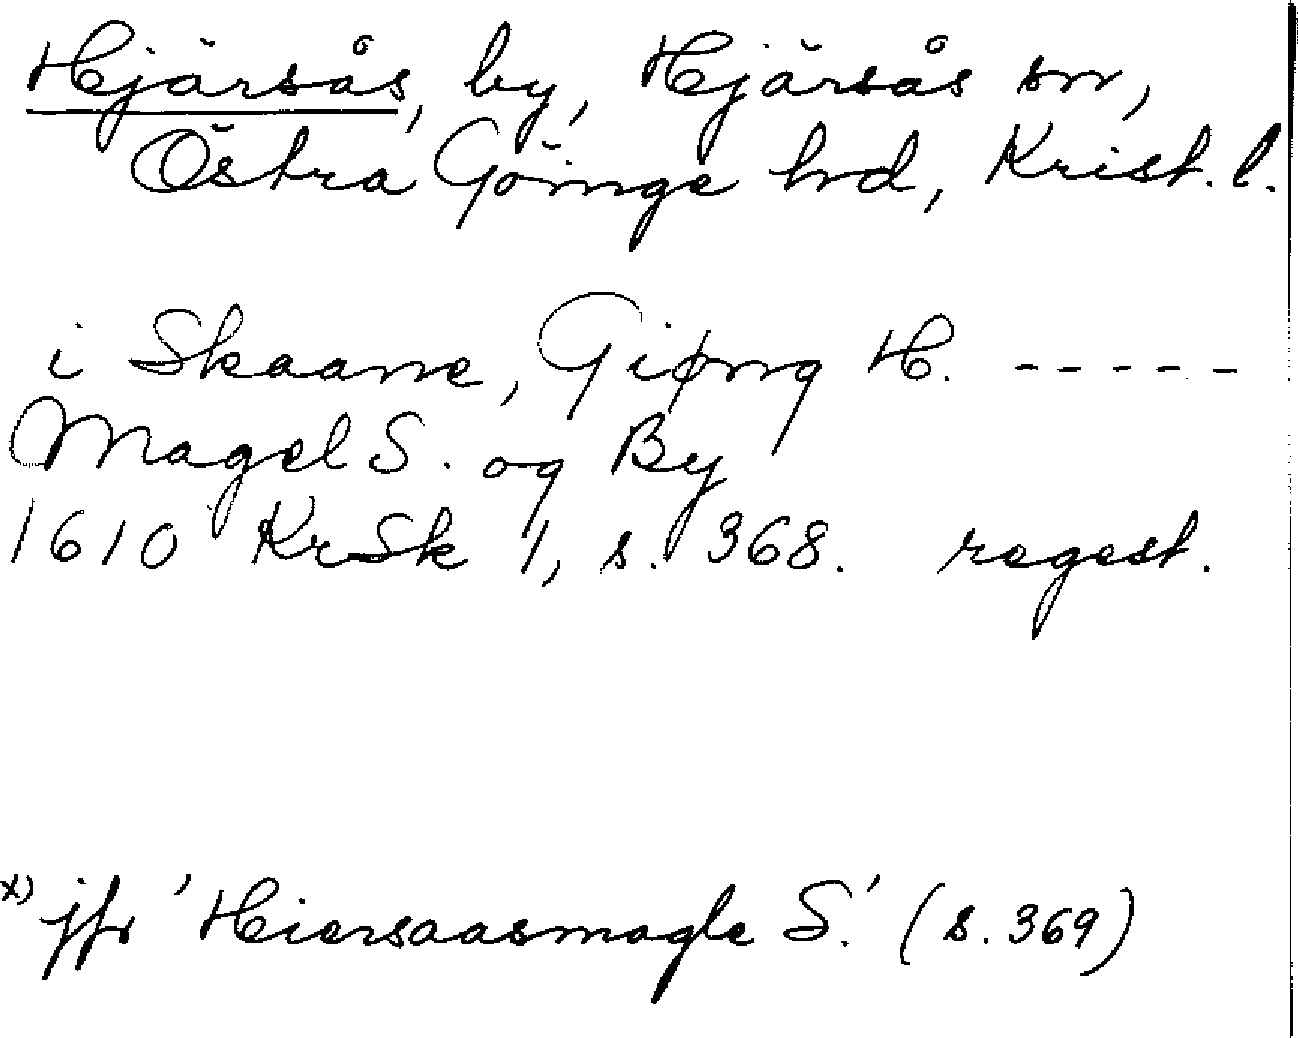 Hjärsås, by, Hjärsås sn,
Östra Göinge hd, Krist. l.
i Skaane, Giøng H. -----
Magel S. og By
1610 KrSk 1, s. 368. regest.
x) jfr 'Hiersaasmagle S.' (s. 369)